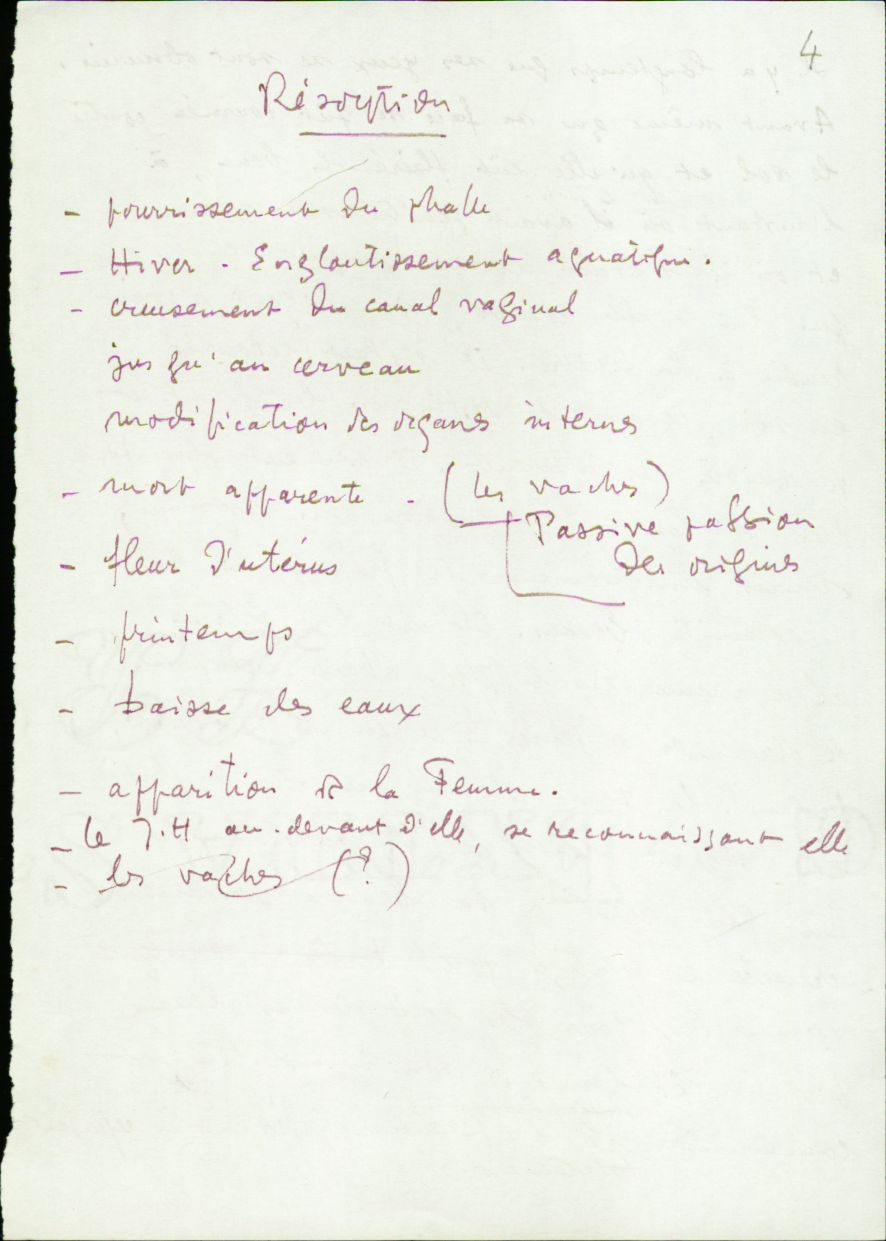 4
Résorption
- pourrissement du phalle
- Hiver - Engloutissement aquatique.
- creusement du canal vaginal
jusqu'au cerveau
modification des organes internes
- mort apparente - (les vaches)
Passive passion
des origines
- fleur d'utérus
- printemps
- baisse des eaux
- apparition de la Femme.
- le J.H au-devant d'elle, se reconnaissant elle
- les vaches (?)